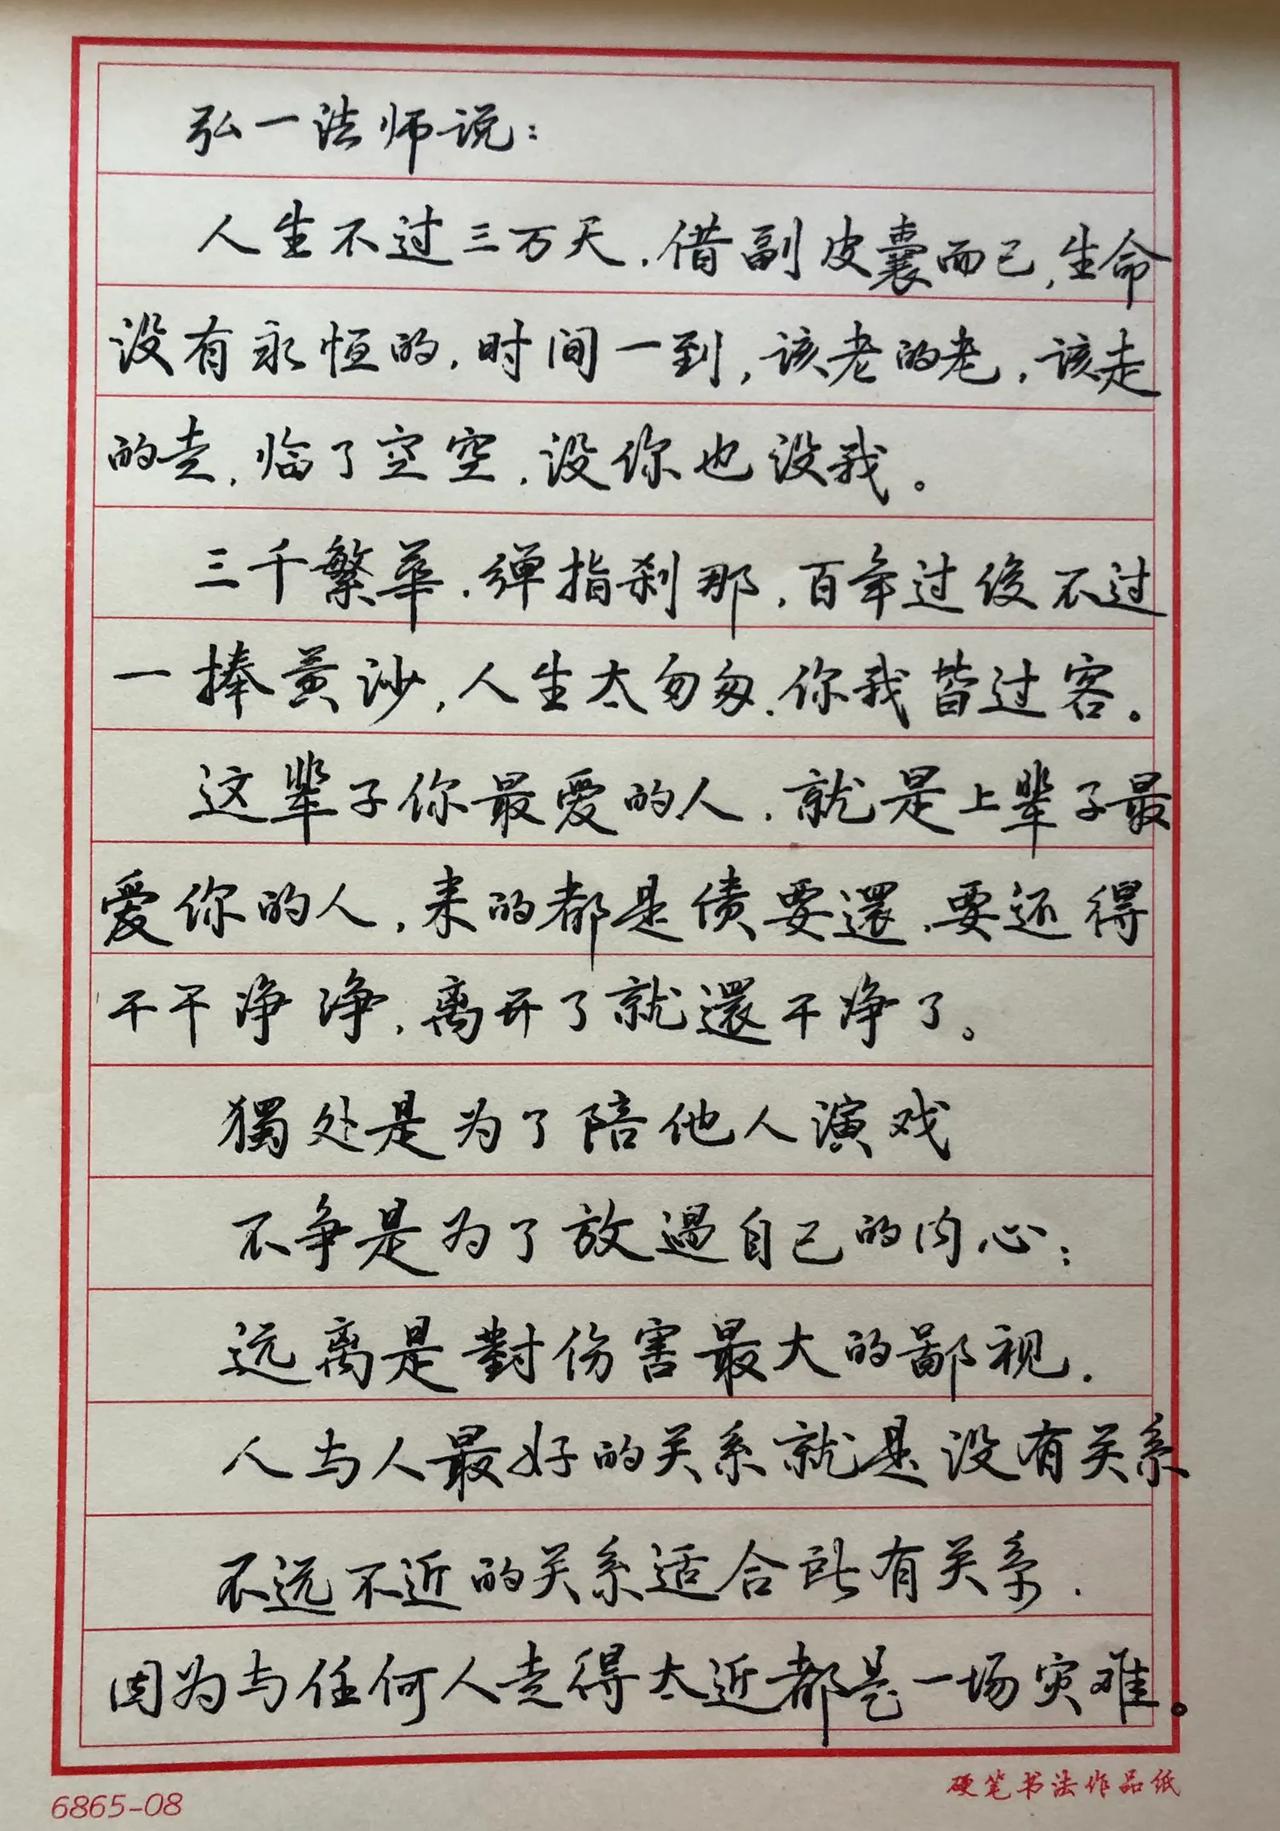 弘一法师说：
人生不过三万天，借副皮囊而已，生命
没有永恒的，时间一到，该老的老，该走
的走，临了空空，没你也没我。
三千繁華，弹指刹那，百年过後不过
一捧黄沙，人生太匆匆，你我皆过客。
这辈子你最爱的人，就是上辈子最
爱你的人，来的都是债要還，要还得
干干净净，离开了就還干净了。
獨处是为了陪他人演戏
不争是为了放過自己的内心；
远离是對伤害最大的鄙视.
人与人最好的关系就是没有关系
不远不近的关系适合所有关系.
因为与任何人走得太近都是一场灾难。
6865-08
硬笔书法作品纸